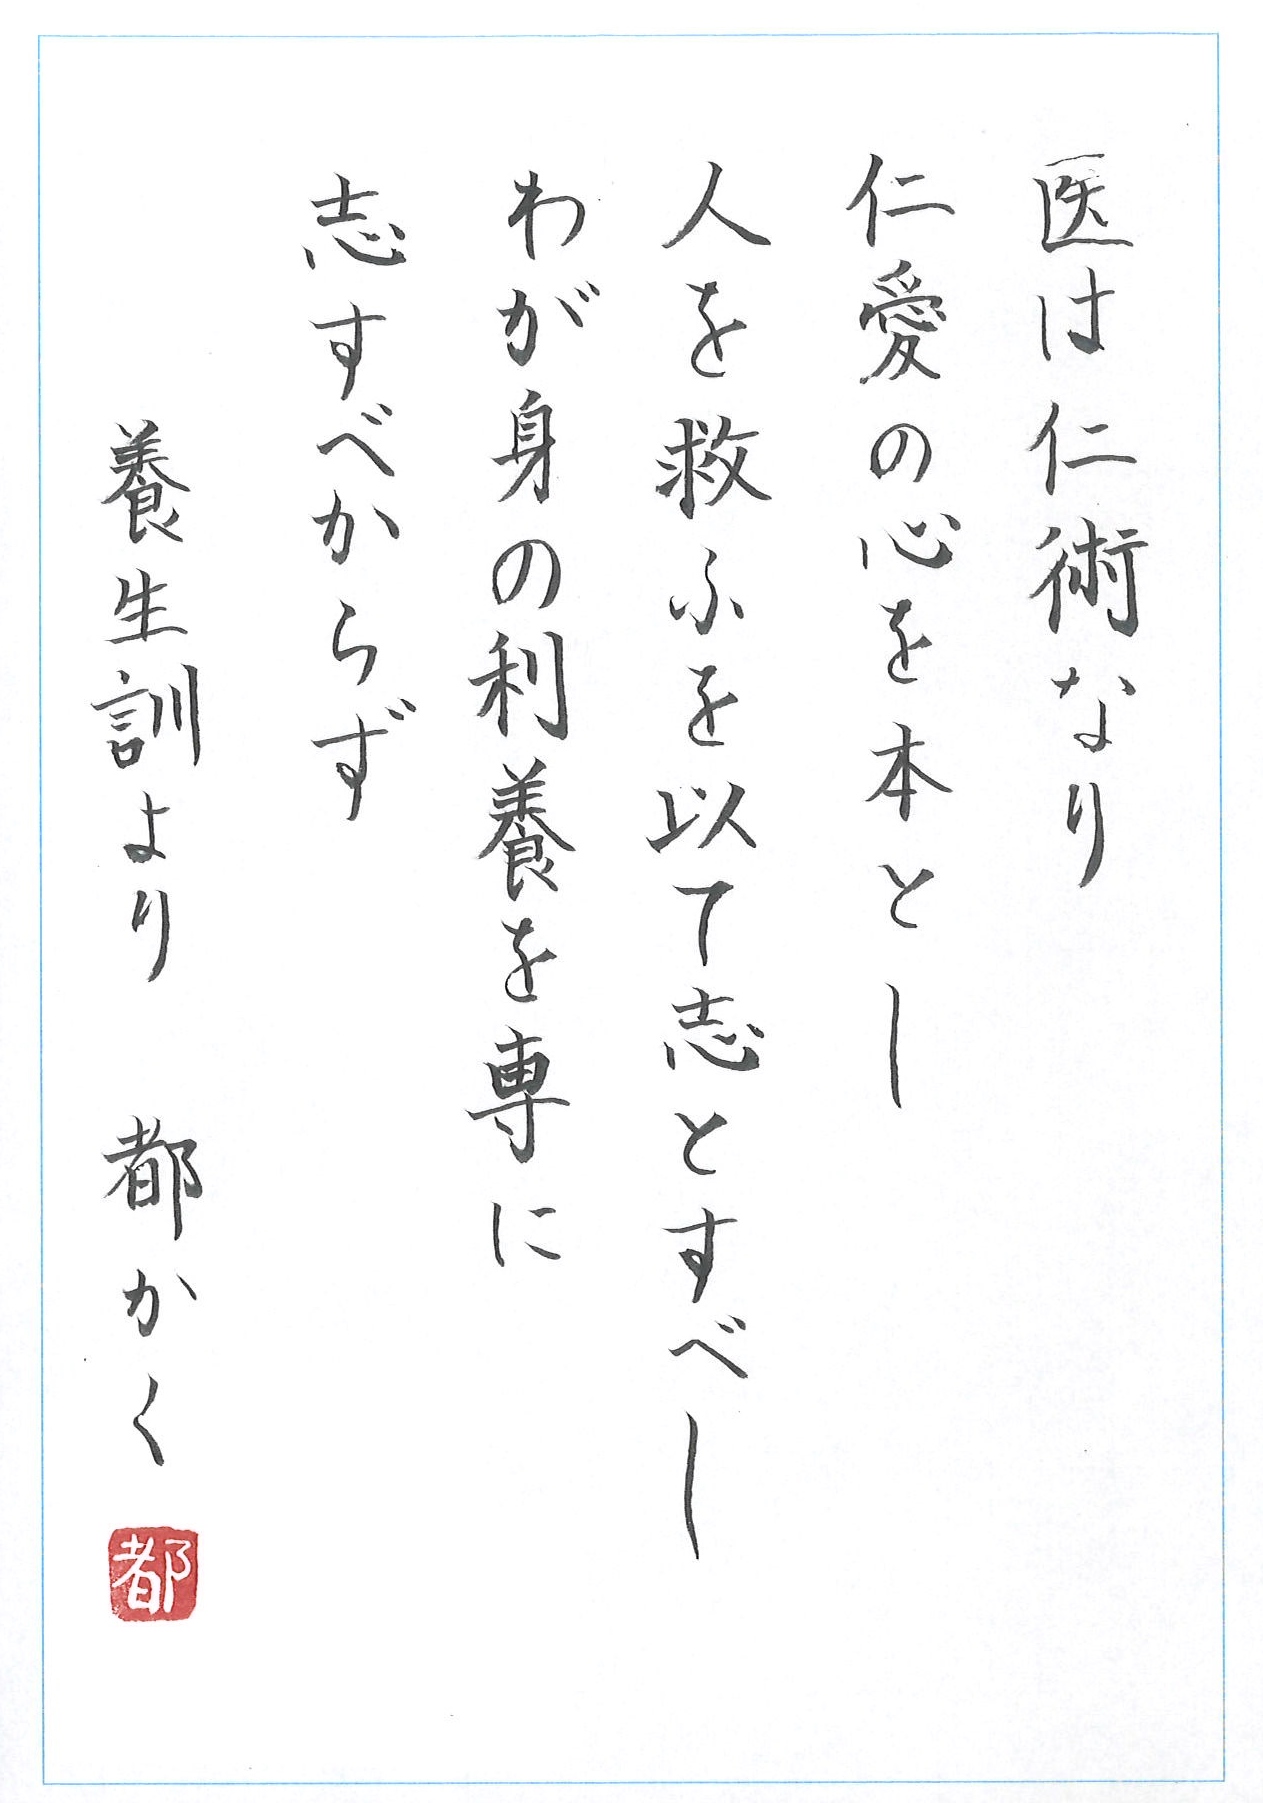 医は仁術なり
仁愛の心を本とし
人を救ふを以て志とすべし
わが身の利養を専に
志すべからず
養生訓より 都かく
都